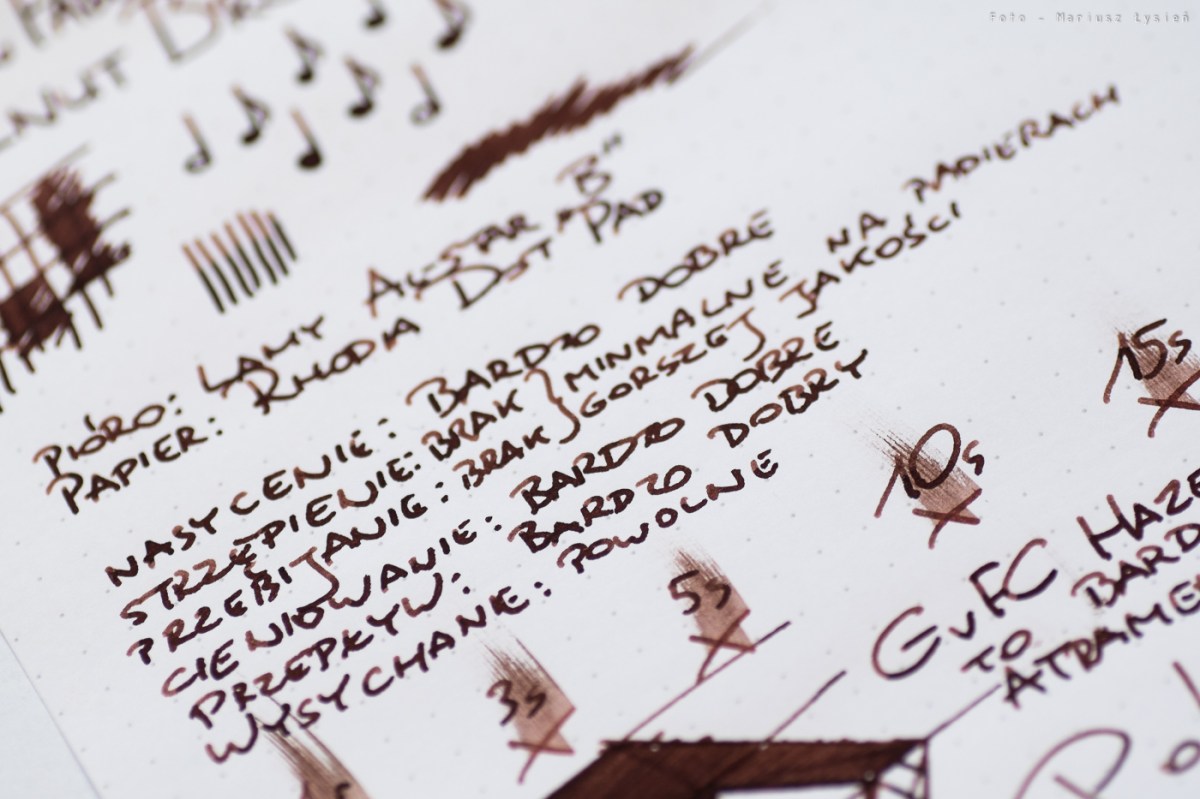 Foto - Mariusz Łysień
PIÓRO: LAMY AL-STAR „B”
PAPIER: RHODIA DOT PAD
NASYCENIE: BARDZO DOBRE
STRZĘPIENIE: BRAK } MINMALNE NA PAPIERACH
PRZEBIJANIE: BRAK } GORSZEJ JAKOŚCI
CIENIOWANIE: BARDZO DOBRE
PRZEPŁYW: BARDZO DOBRY
WYSYCHANIE: POWOLNE
15s
10s
5s
3s
GvFC HAZE
TO BARD
ATRAME